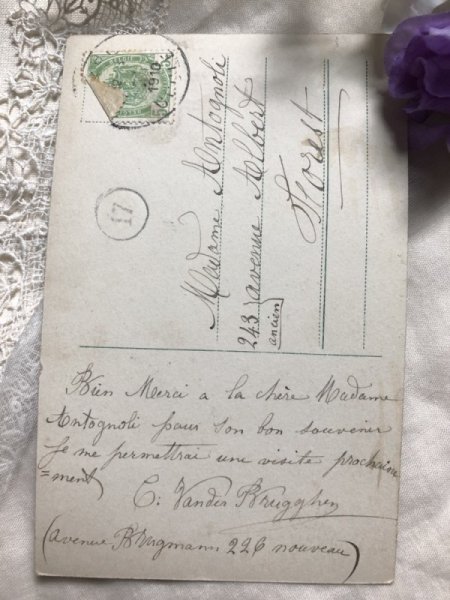 1910
17
Madame Antognoli
243 avenue Albert
ancien
Forest
Bien Merci a la chère Madame
Antognoli pour son bon souvenir
Je me permettrai une visite prochaine
=ment)
C: Vander Brugghen
(avenue Brugmann 226 nouveau)